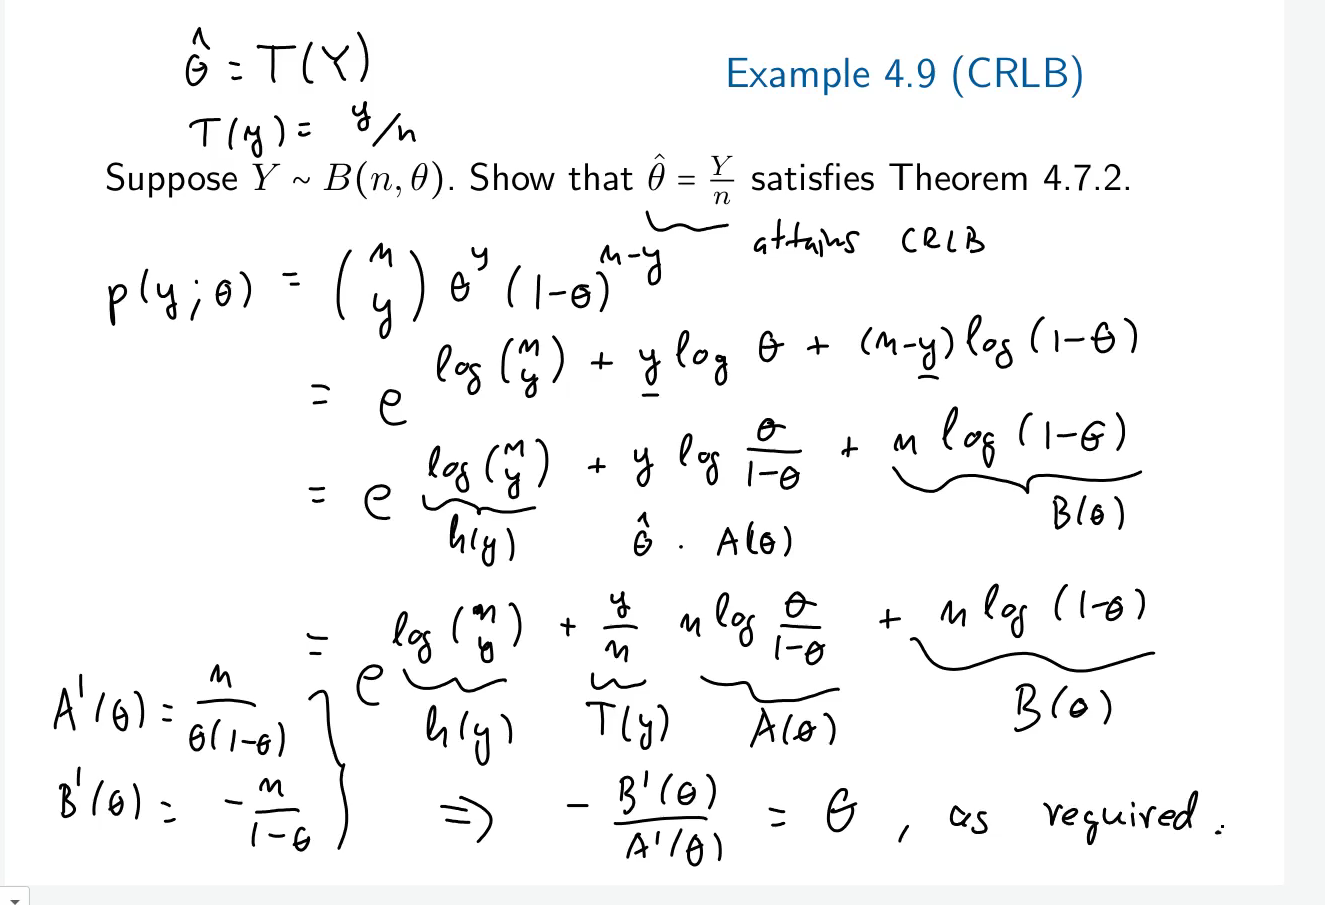 θ̂ = T(Y)
Example 4.9 (CRLB)
T(y) = y/n
Suppose Y ~ B(n, θ). Show that θ̂ = Y/n satisfies Theorem 4.7.2.
attains CRLB
p(y; θ) = (n y) θ^y (1-θ)^{n-y}
= e^{log (n y) + y log θ + (n-y) log (1-θ)}
= e^{log (n y) + y log θ/(1-θ) + n log (1-θ)}
h(y) θ̂ . A(θ) B(θ)
= e^{log (n y) + y/n n log θ/(1-θ) + n log (1-θ)}
h(y) T(y) A(θ) B(θ)
A'(θ) = n/(θ(1-θ))
B'(θ) = - n/(1-θ) } ⇒ - B'(θ)/A'(θ) = θ, as required.